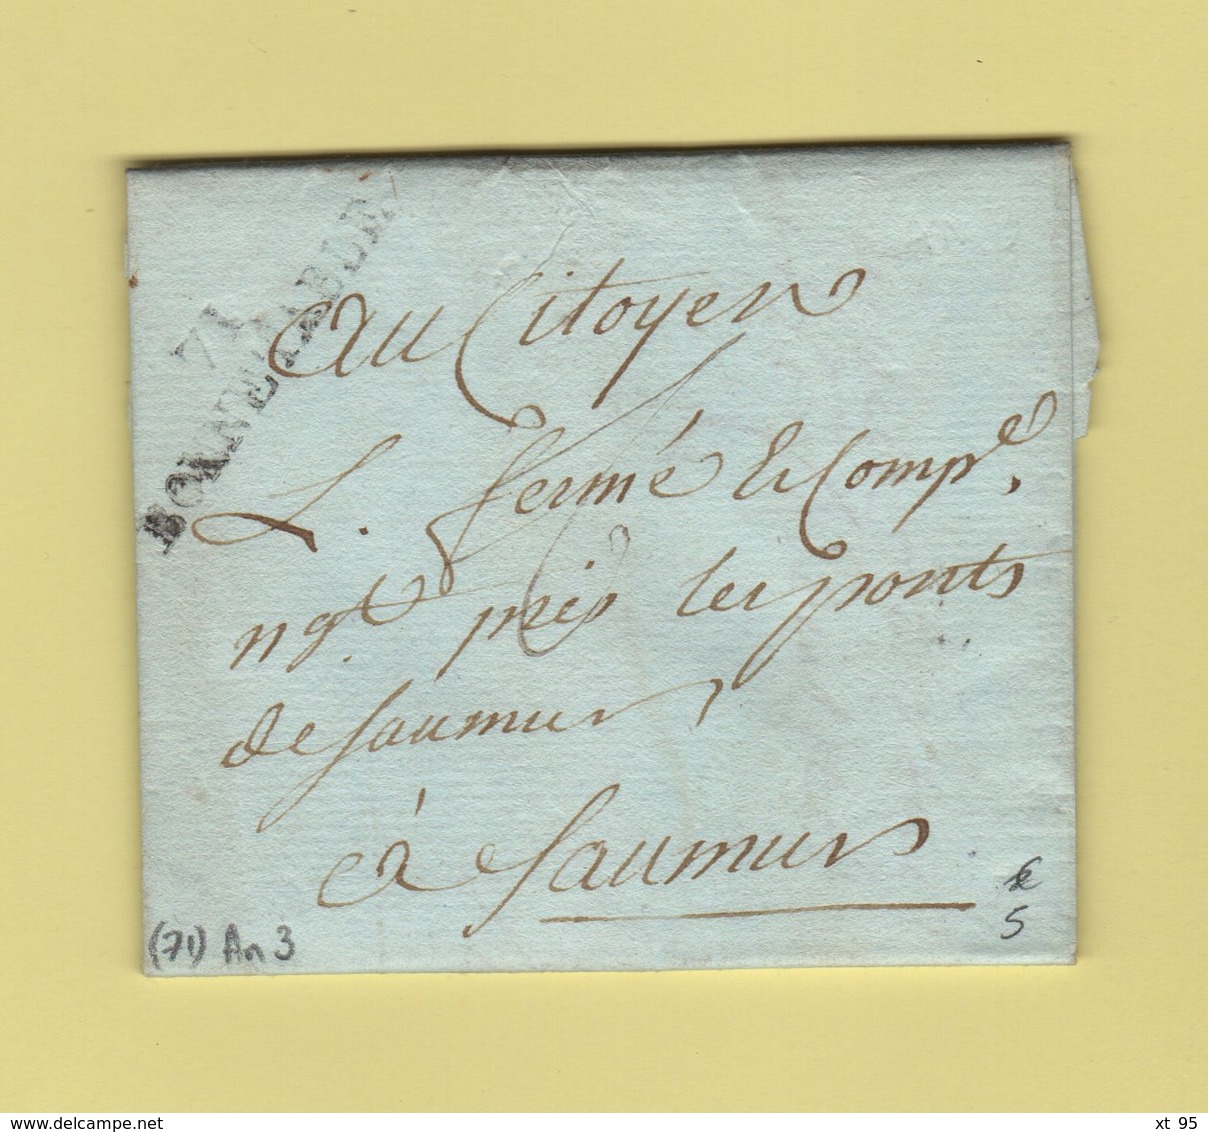 71
BONNETABLE
Au Citoyen
L. fermé & Compe,
ngt. près les ponts
de Saumur,
à Saumur
(71) An 3
5
delcampe.net
xt 95